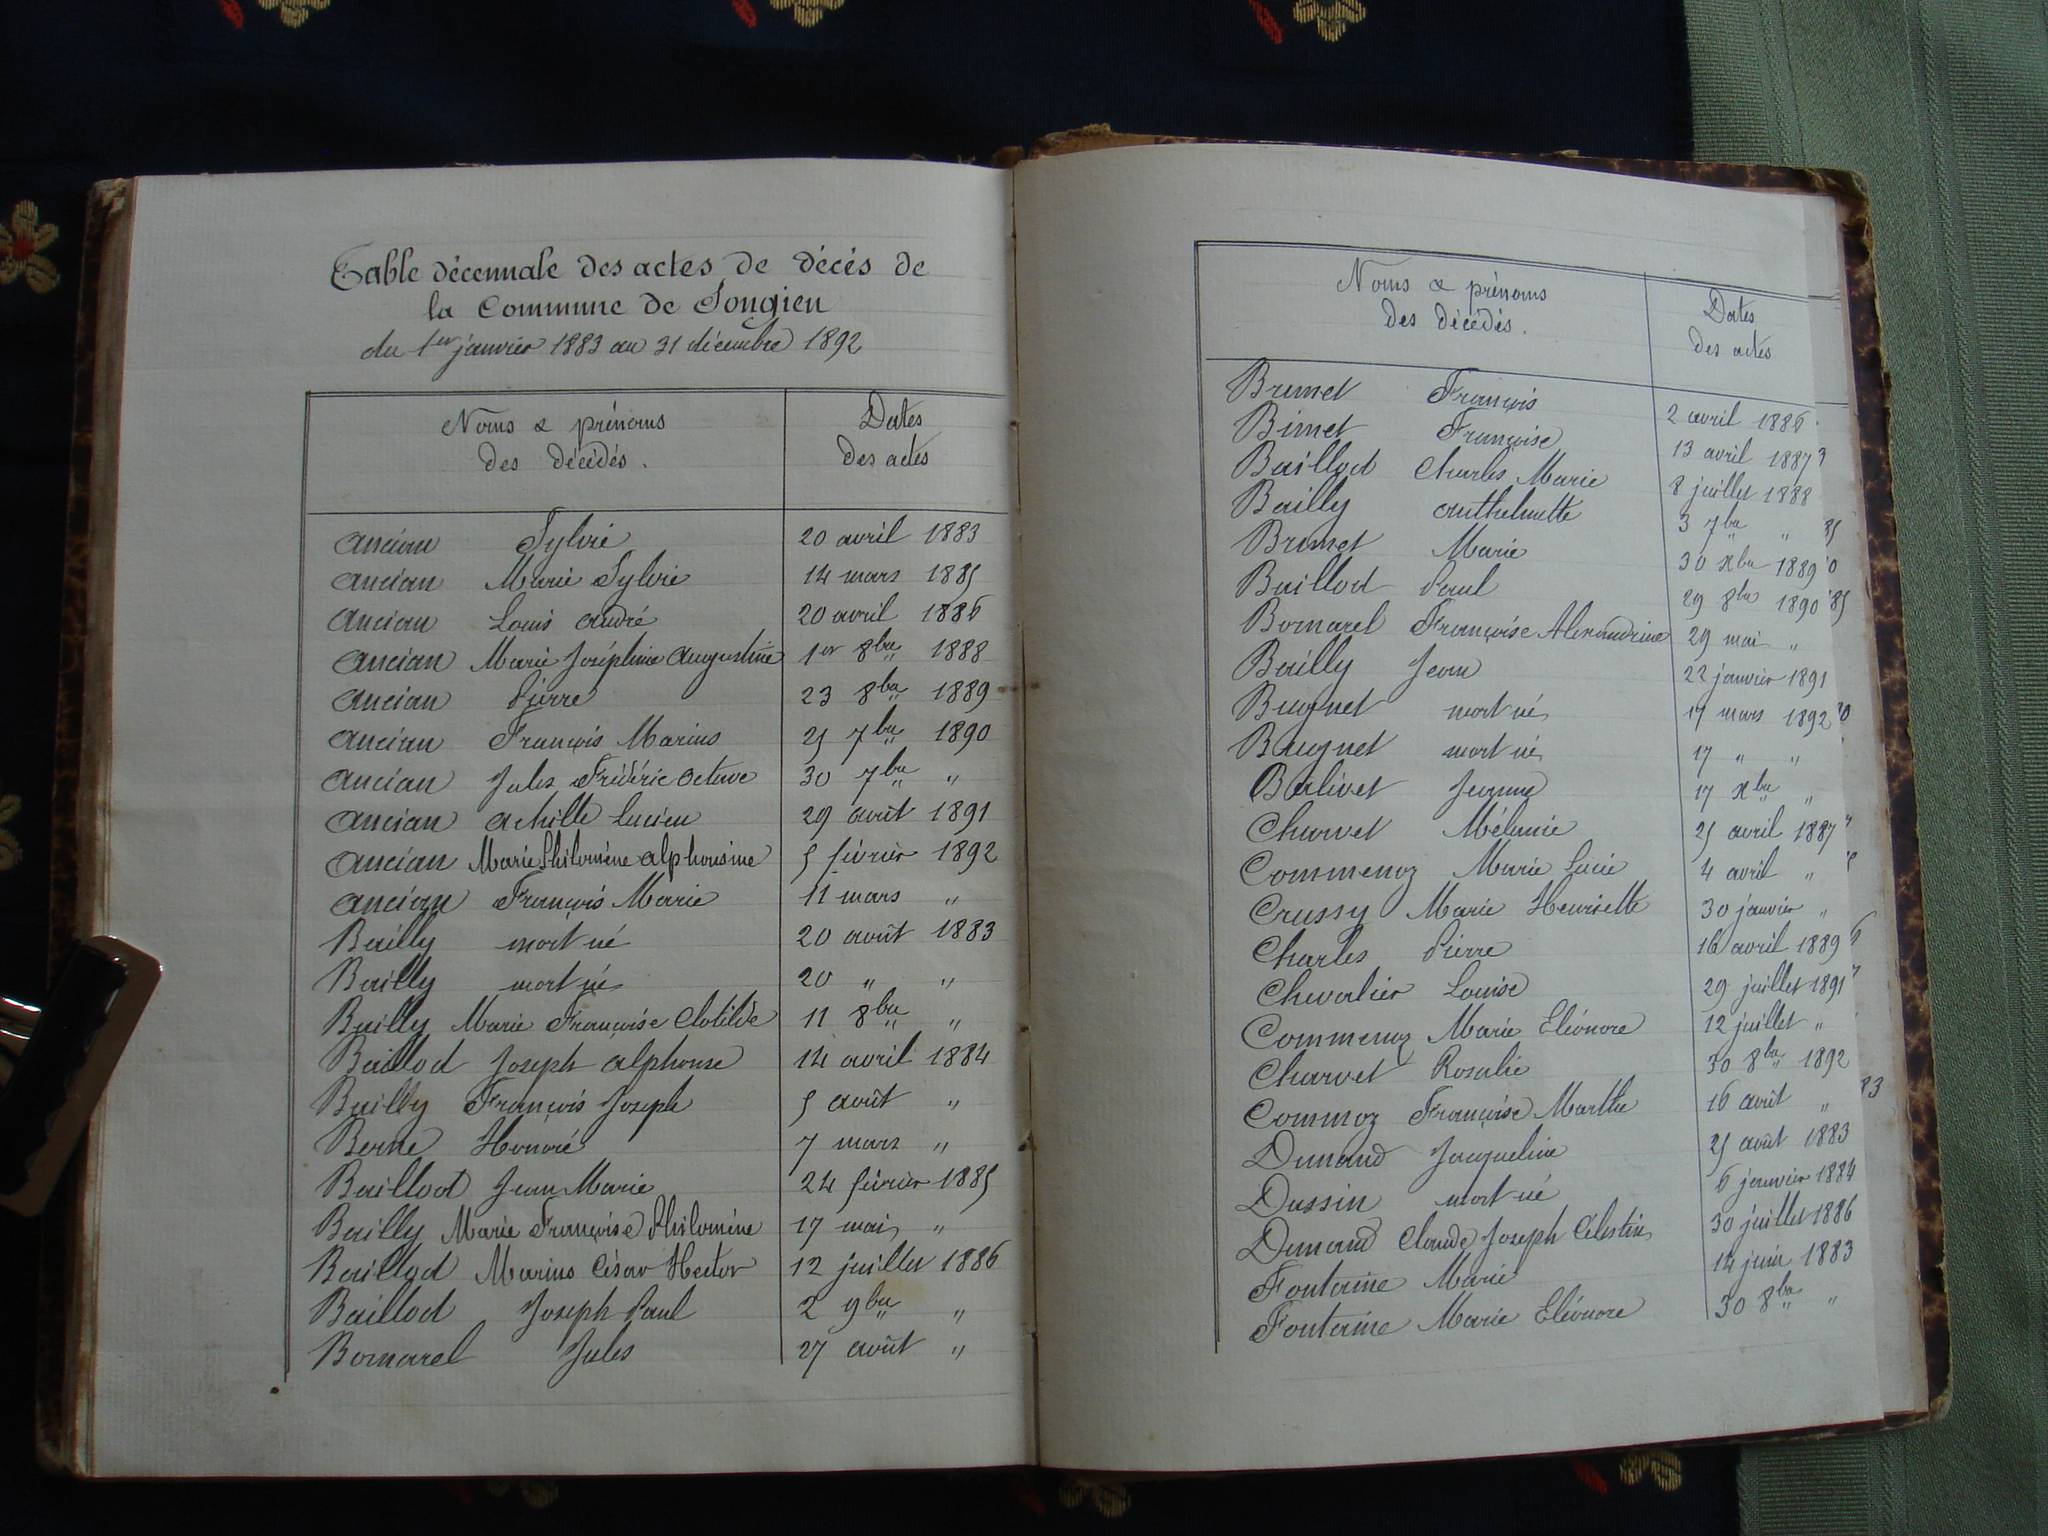 Table décennale des actes de décés de
la Commune de Songieu
du 1er janvier 1883 au 31 décembre 1892
Noms & prénoms
des décédés.
Dates
des actes
Ancian Sylvie 20 avril 1883
Ancian Marie Sylvie 14 mars 1885
Ancian Louis André 20 avril 1886
Ancian Marie Joséphine Augustine 1er 8bre 1888
Ancian Pierre 23 8bre 1889
Ancian François Marius 25 7bre 1890
Ancian Jules Frédéric Octave 30 7bre "
Ancian Achille Lucien 29 août 1891
Ancian Marie Philomène Alphonsine 5 février 1892
Ancian François Marie 11 mars "
Bailly mort né 20 août 1883
Bailly mort né 20 " "
Bailly Marie Françoise Clotilde 11 8bre "
Baillod Joseph Alphonse 14 avril 1884
Bailly François Joseph 5 août "
Berne Honoré 7 mars "
Baillod Jean Marie 24 février 1885
Bailly Marie Françoise Philomène 17 mai "
Baillod Marius César Hector 12 juillet 1886
Baillod Joseph Paul 2 9bre "
Bomarel Jules 27 août "
Noms & prénoms
des décédés.
Dates
des actes
Brunet François 2 avril 1886
Binet Françoise 13 avril 1887
Baillod Charles Marie 8 juillet 1888
Bailly Anthelmette 3 7bre "
Brunet Marie 30 Xbre 1889
Baillod Paul 29 8bre 1890
Bomarel Françoise Alexandrine 29 mai "
Bailly Jean 22 janvier 1891
Bugnet mort né 17 mars 1892
Bugnet mort né 17 " "
Balivet Jeanne 17 Xbre "
Charvet Mélanie 25 avril 1887
Commenoz Marie Lucie 4 avril "
Crussy Marie Henriette 30 janvier "
Charles Pierre 16 avril 1889
Chevalier Louise 29 juillet 1891
Commenoz Marie Eléonore 12 juillet "
Charvet Rosalie 30 8bre 1892
Commoz Françoise Marthe 16 août "
Dunand Jacqueline 25 août 1883
Dussin mort né 6 janvier 1884
Dunand Claude Joseph Célestin 30 juillet 1886
Fontaine Marie 14 juin 1883
Fontaine Marie Eléonore 30 8bre "